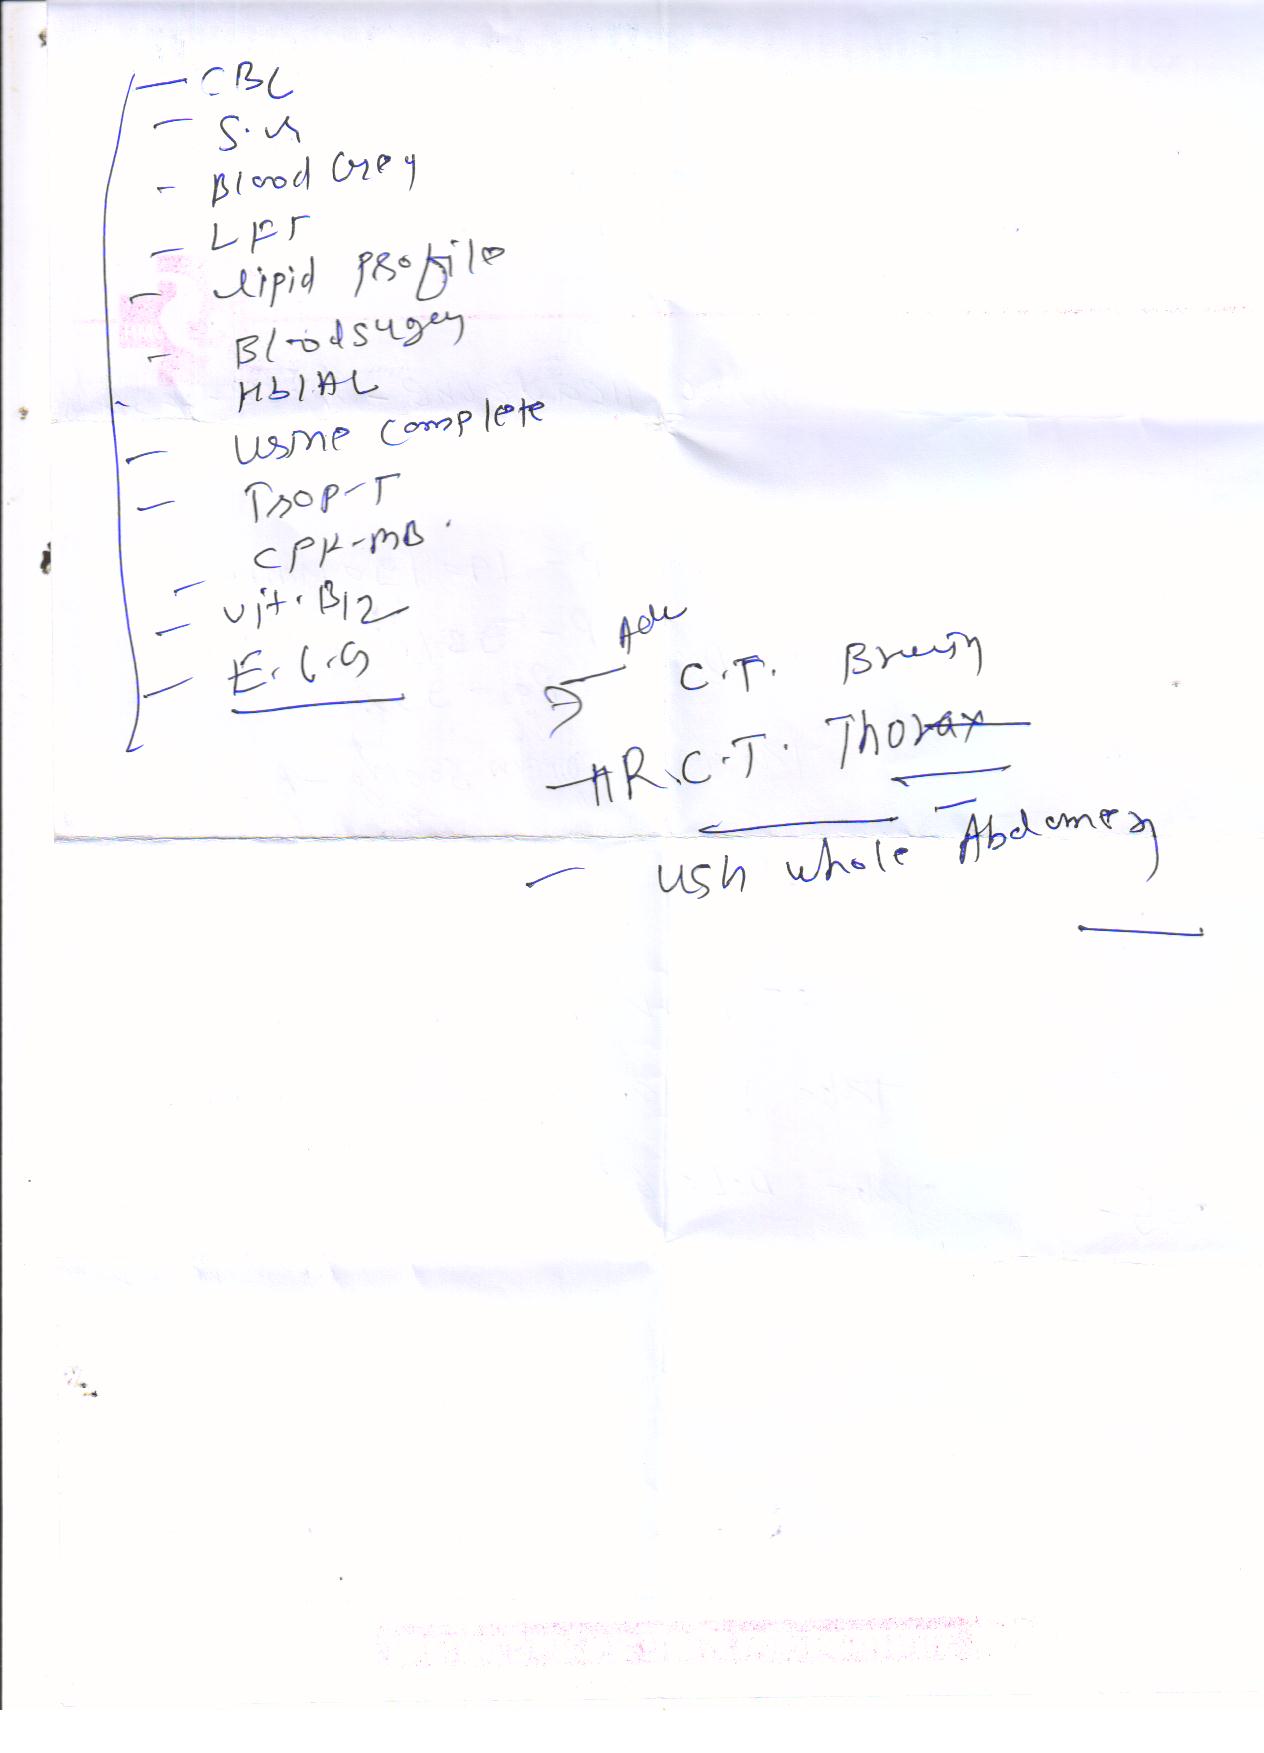 CBC
S. Cr
Blood Urea
LFT
Lipid profile
Blood sugar
Hb1AC
Urine complete
Trop-T
CPK-MB
Vit. B12
E.C.G
Adv
C.T. Brain
HR.C.T. Thorax
USG whole Abdomen